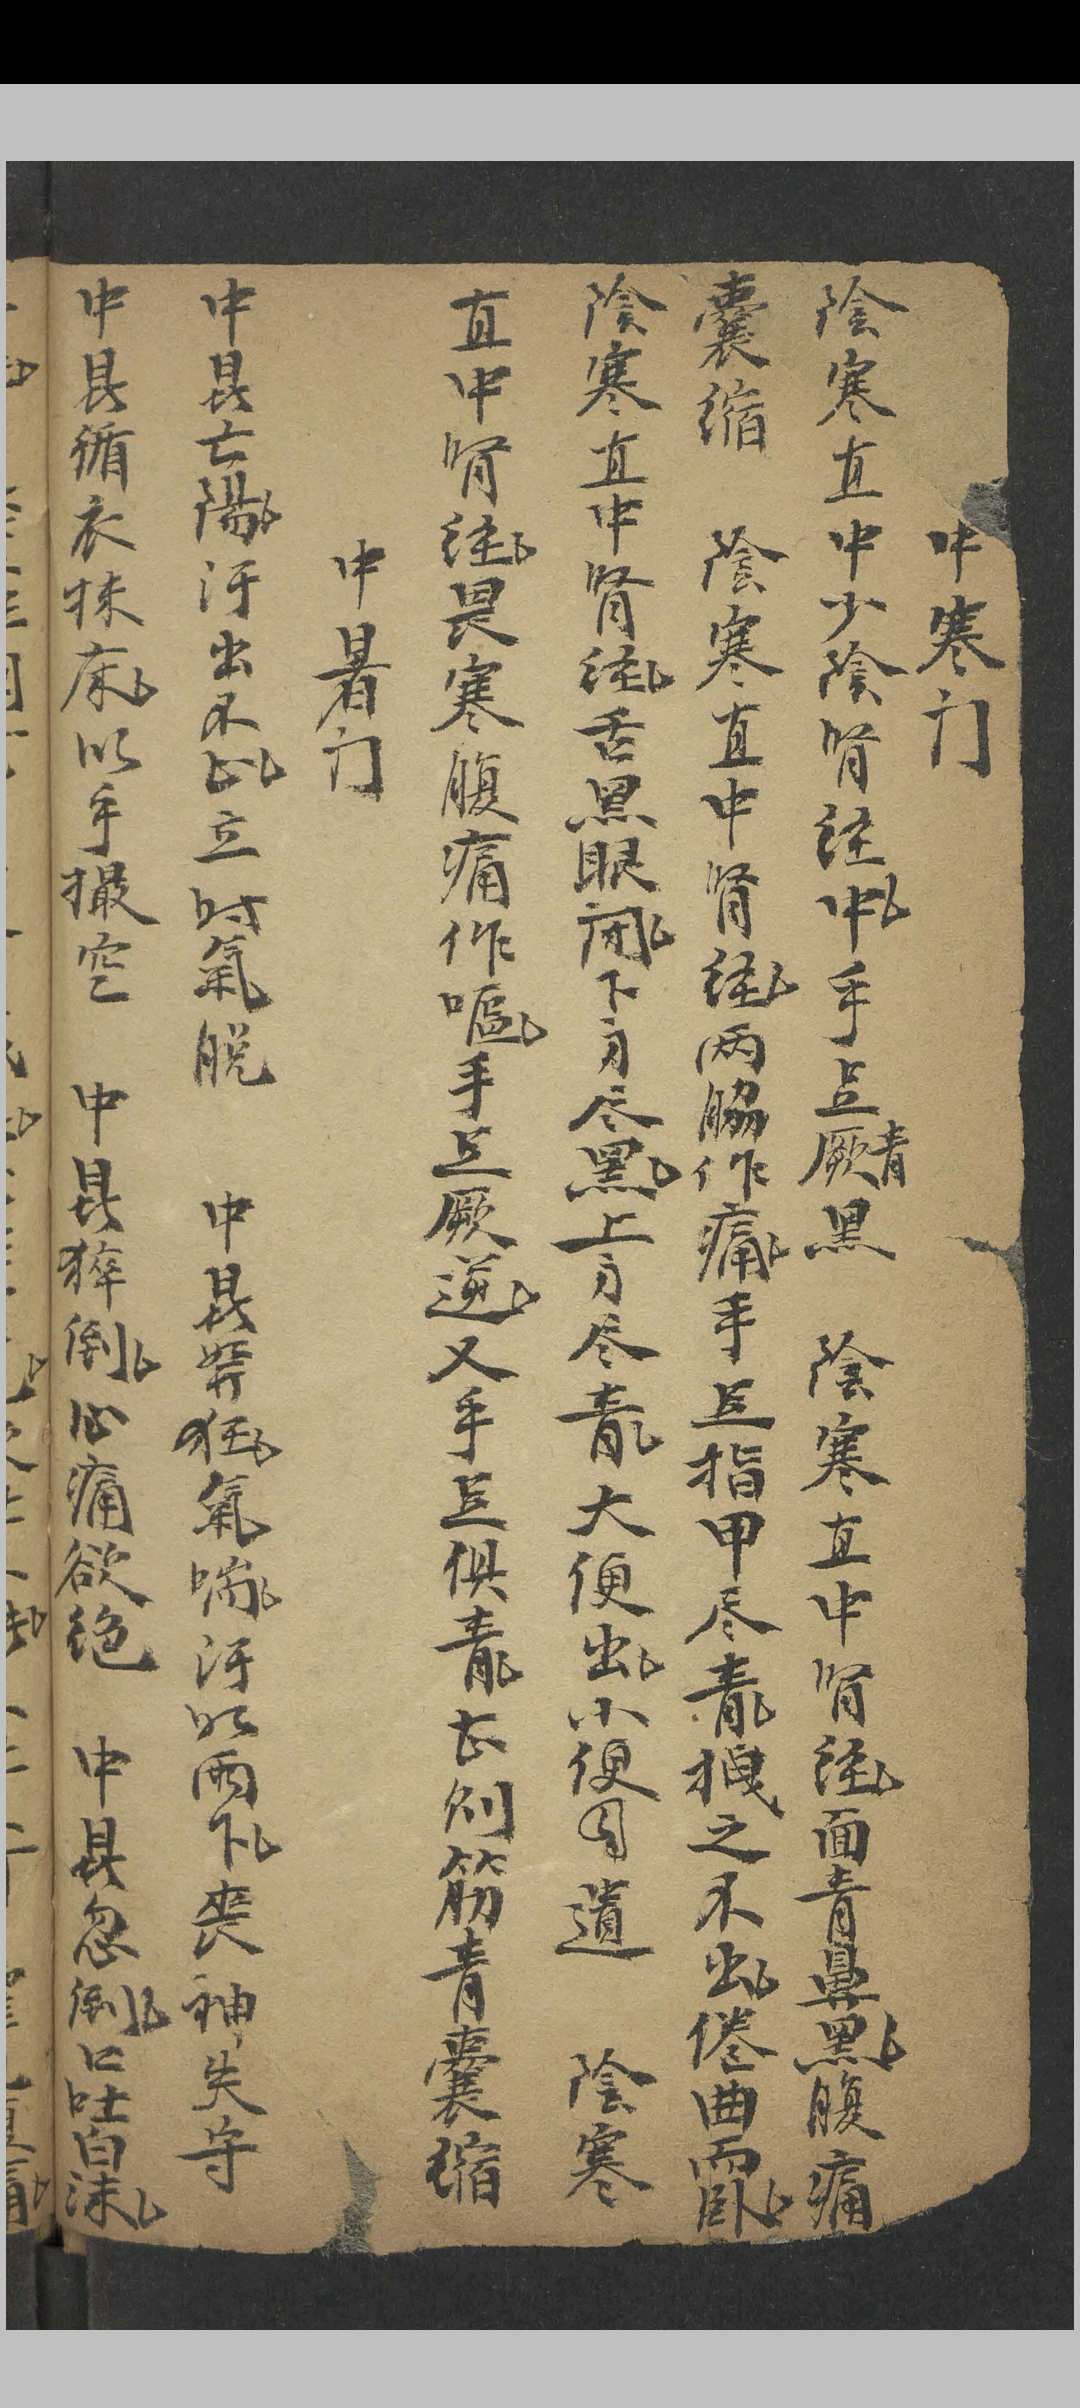 中寒门
陰寒直中少陰肾経中手足厥青黑　陰寒直中肾経面青鼻黑腹痛
囊缩　陰寒直中肾経两脇作痛手足指甲尽青拽之不出倦曲而卧
陰寒直中肾経舌黑眼闭下身尽黑上身尽青大便出小便自遺　陰寒
直中肾経畏寒腹痛作嘔手足厥逆又手足俱青甚则筋青囊缩
中暑门
中暑亡陽汗出不止立时氣脱　中暑發狂氣喘汗如雨下丧神失守
中暑循衣抹床以手撮空　中暑猝倒心痛欲绝　中暑忽倒口吐白沫